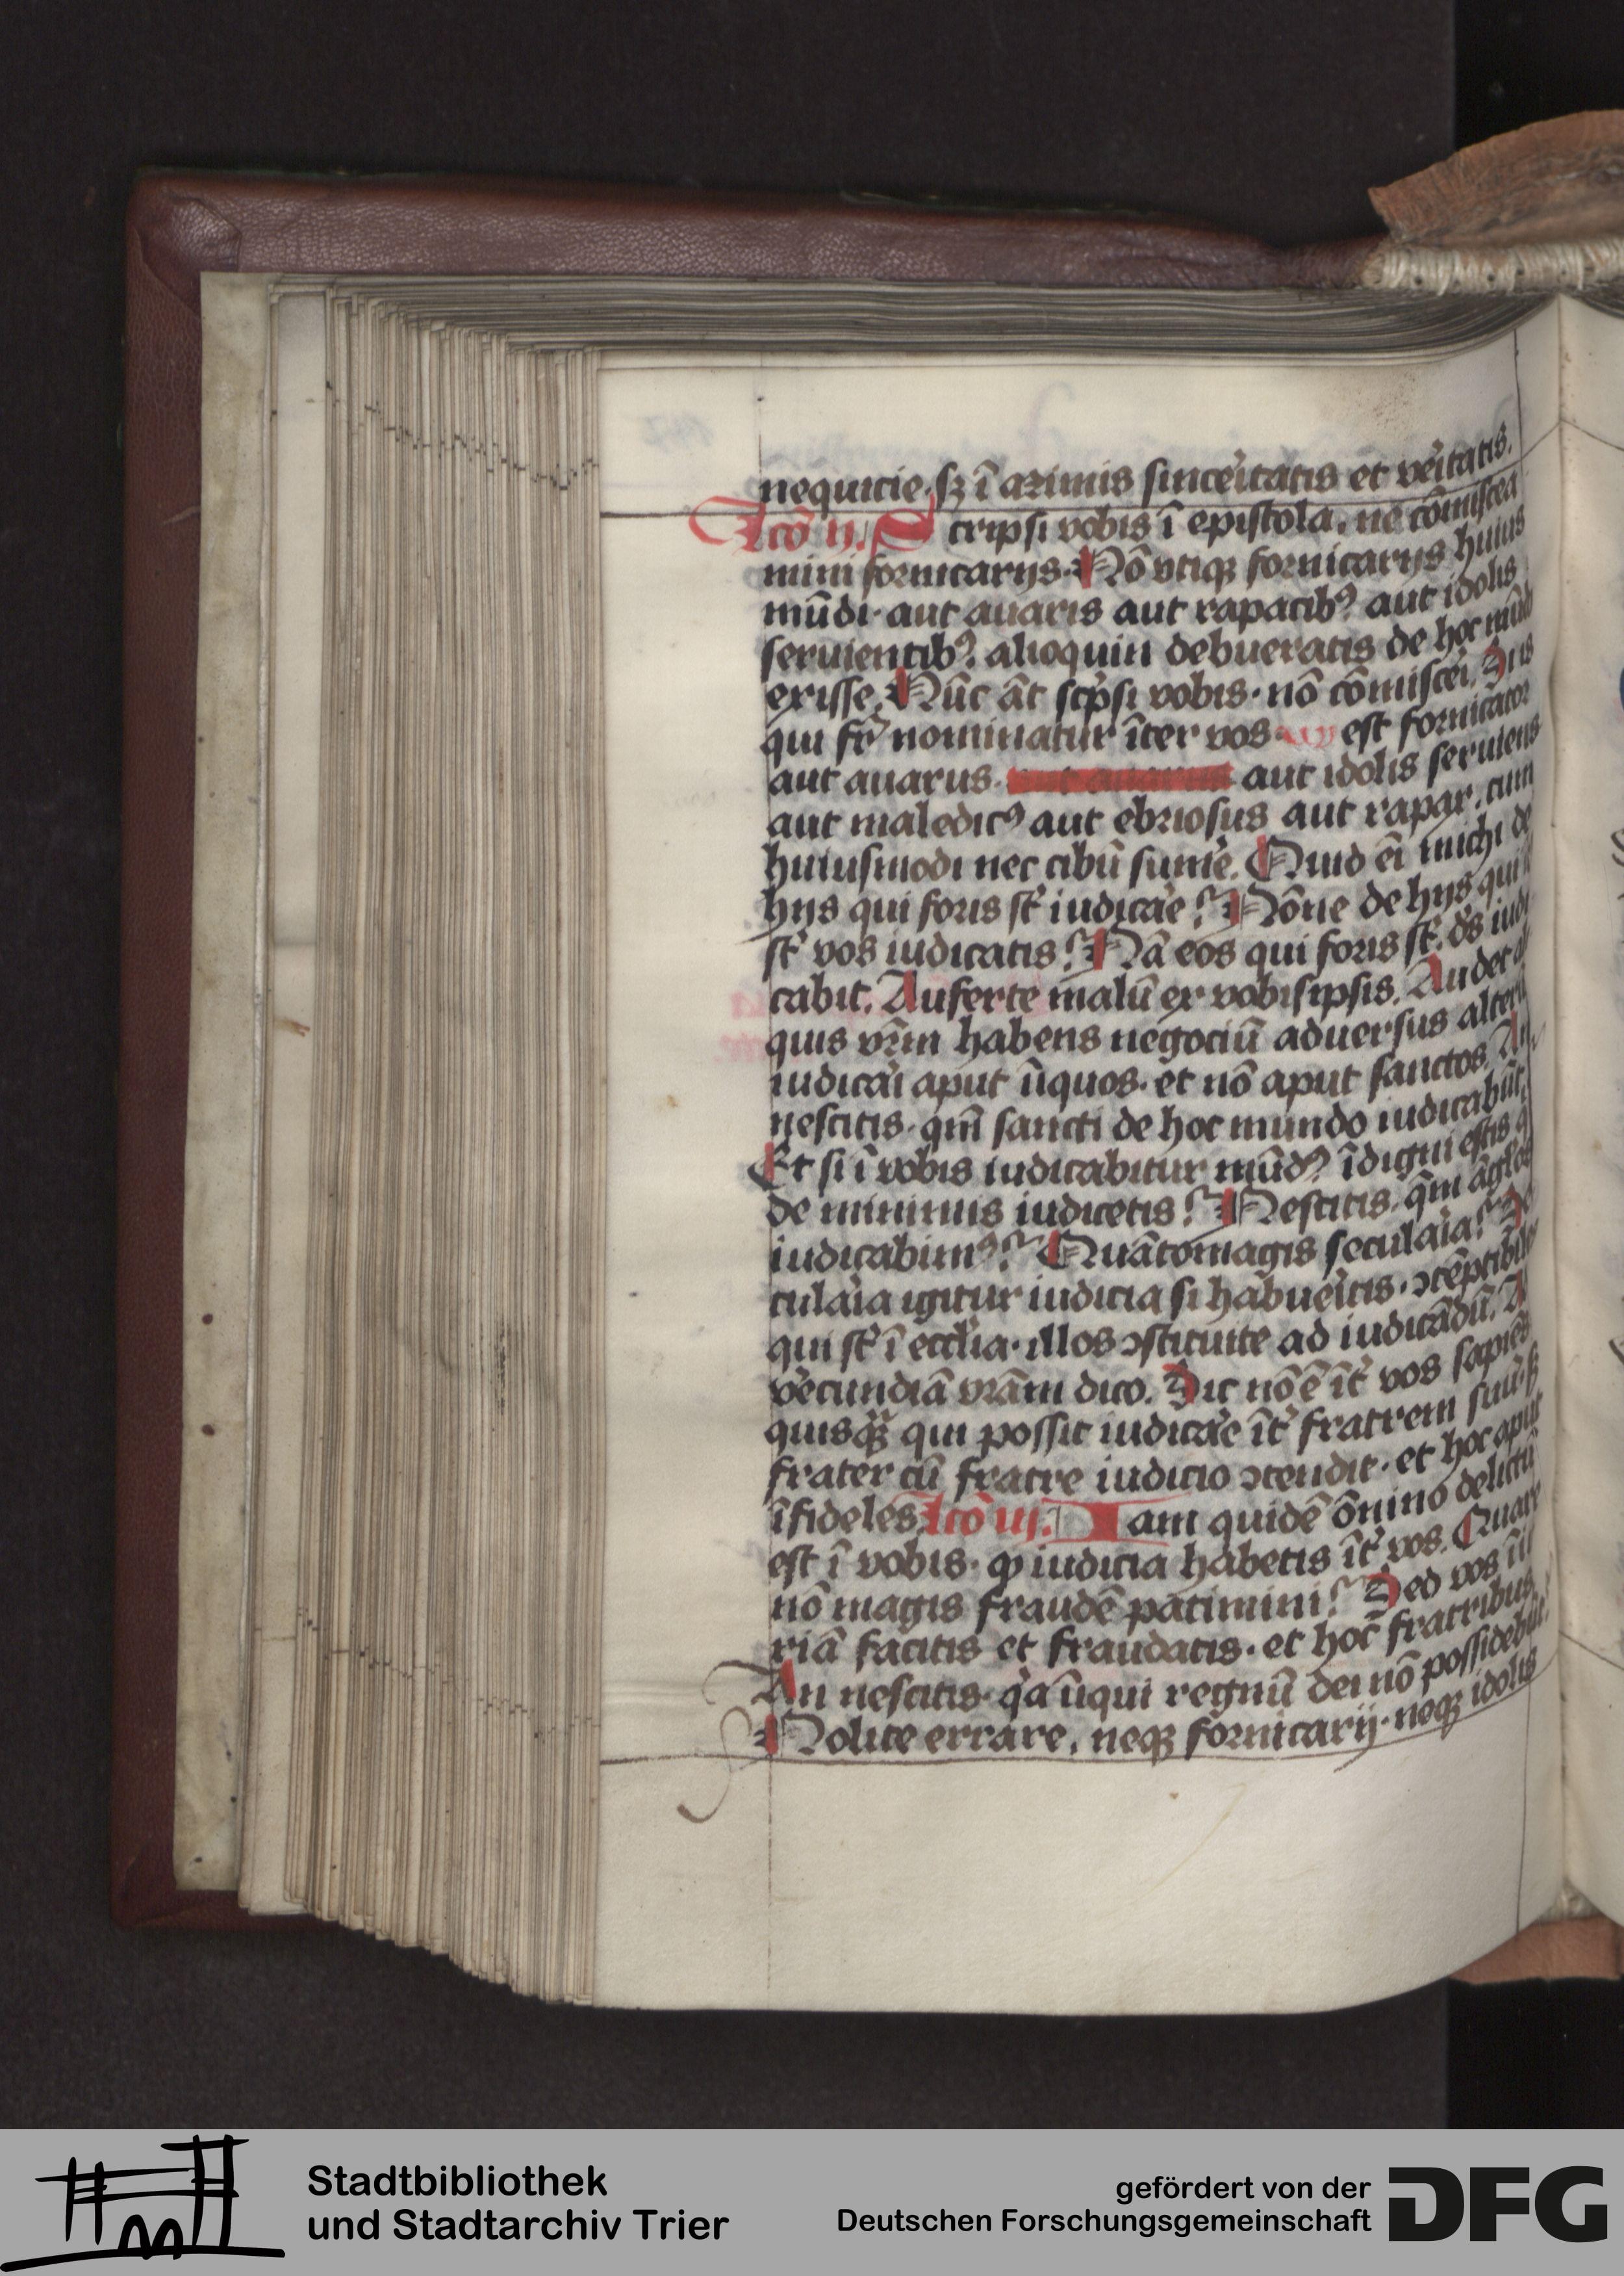 nequicie. sꝫ ī azimis sincˀitatis et vˀitatis.
Lcō ij. Scripsi vobis ī epistola, ne cōmiscea
mini fornicarijs. Nō vtiqꝫ fornicarijs huius
mūdi. aut auaris aut rapacibꝰ. aut idolis
seruientibꝰ. alioquin debueratis de hoc mūd
exisse. Nūc āt scͥpsi vobis. nō cōmiscˀi. Si is
qui fr̄ nominatur īter vos. est fornicator
aut auarus. aut auarus aut idolis seruiens
aut maledicꝰ aut ebriosus aut rapax. cum
huiusmodi nec cibū sumˀe. Quid eī michi de
hijs qui foris st̄ iudicaˀe? Nōne de hijs qui
st̄ vos iudicatis? Nā eos qui foris st̄. dˢ iudi
cabit. Auferte malū ex vobisipsis. Audet al
quis vr̄m habens negociū aduersus alterū
iudicaˀi aput īiquos. et nō aput sanctos. An
nescitis. qm̄ sancti de hoc mundo iudicabūt.
Et si ī vobis iudicabitur mūdꝰ. īdigni estis q
de minimis iudicetis? Nescitis. qm̄ āgelos
iudicabimꝰ? Quātomagis seculaˀia? Se
culaˀia igitur iudicia si habuˀitis. ↄtēptibiles
qui st̄ ī ecclˀia. illos ↄstituite ad iudicādū. A
vˀecundiā vr̄am dico. Sic nō ē īt̄ vos sapiēs
quisqꝫ qui possit iudicaˀe īt̄ fratrem suū. sꝫ
frater cū fratre iudicio ↄtendit. et hoc aput
īfideles. Lcō iij. Iam quidē ōnino delictū
est ī vobis. ꝙ iudicia habetis īt̄ vos. Quare
nō magis fraudē patimini? Sed vos īiu
riā facitis et fraudatis. et hoc fratribus.
An nescitis. qͥa īiqui regnū dei nō possidebūt.
Nolite errare, neqꝫ fornicarij. neqꝫ idolis
Stadtbibliothek
und Stadtarchiv Trier
gefördert von der
Deutschen Forschungsgemeinschaft
DFG